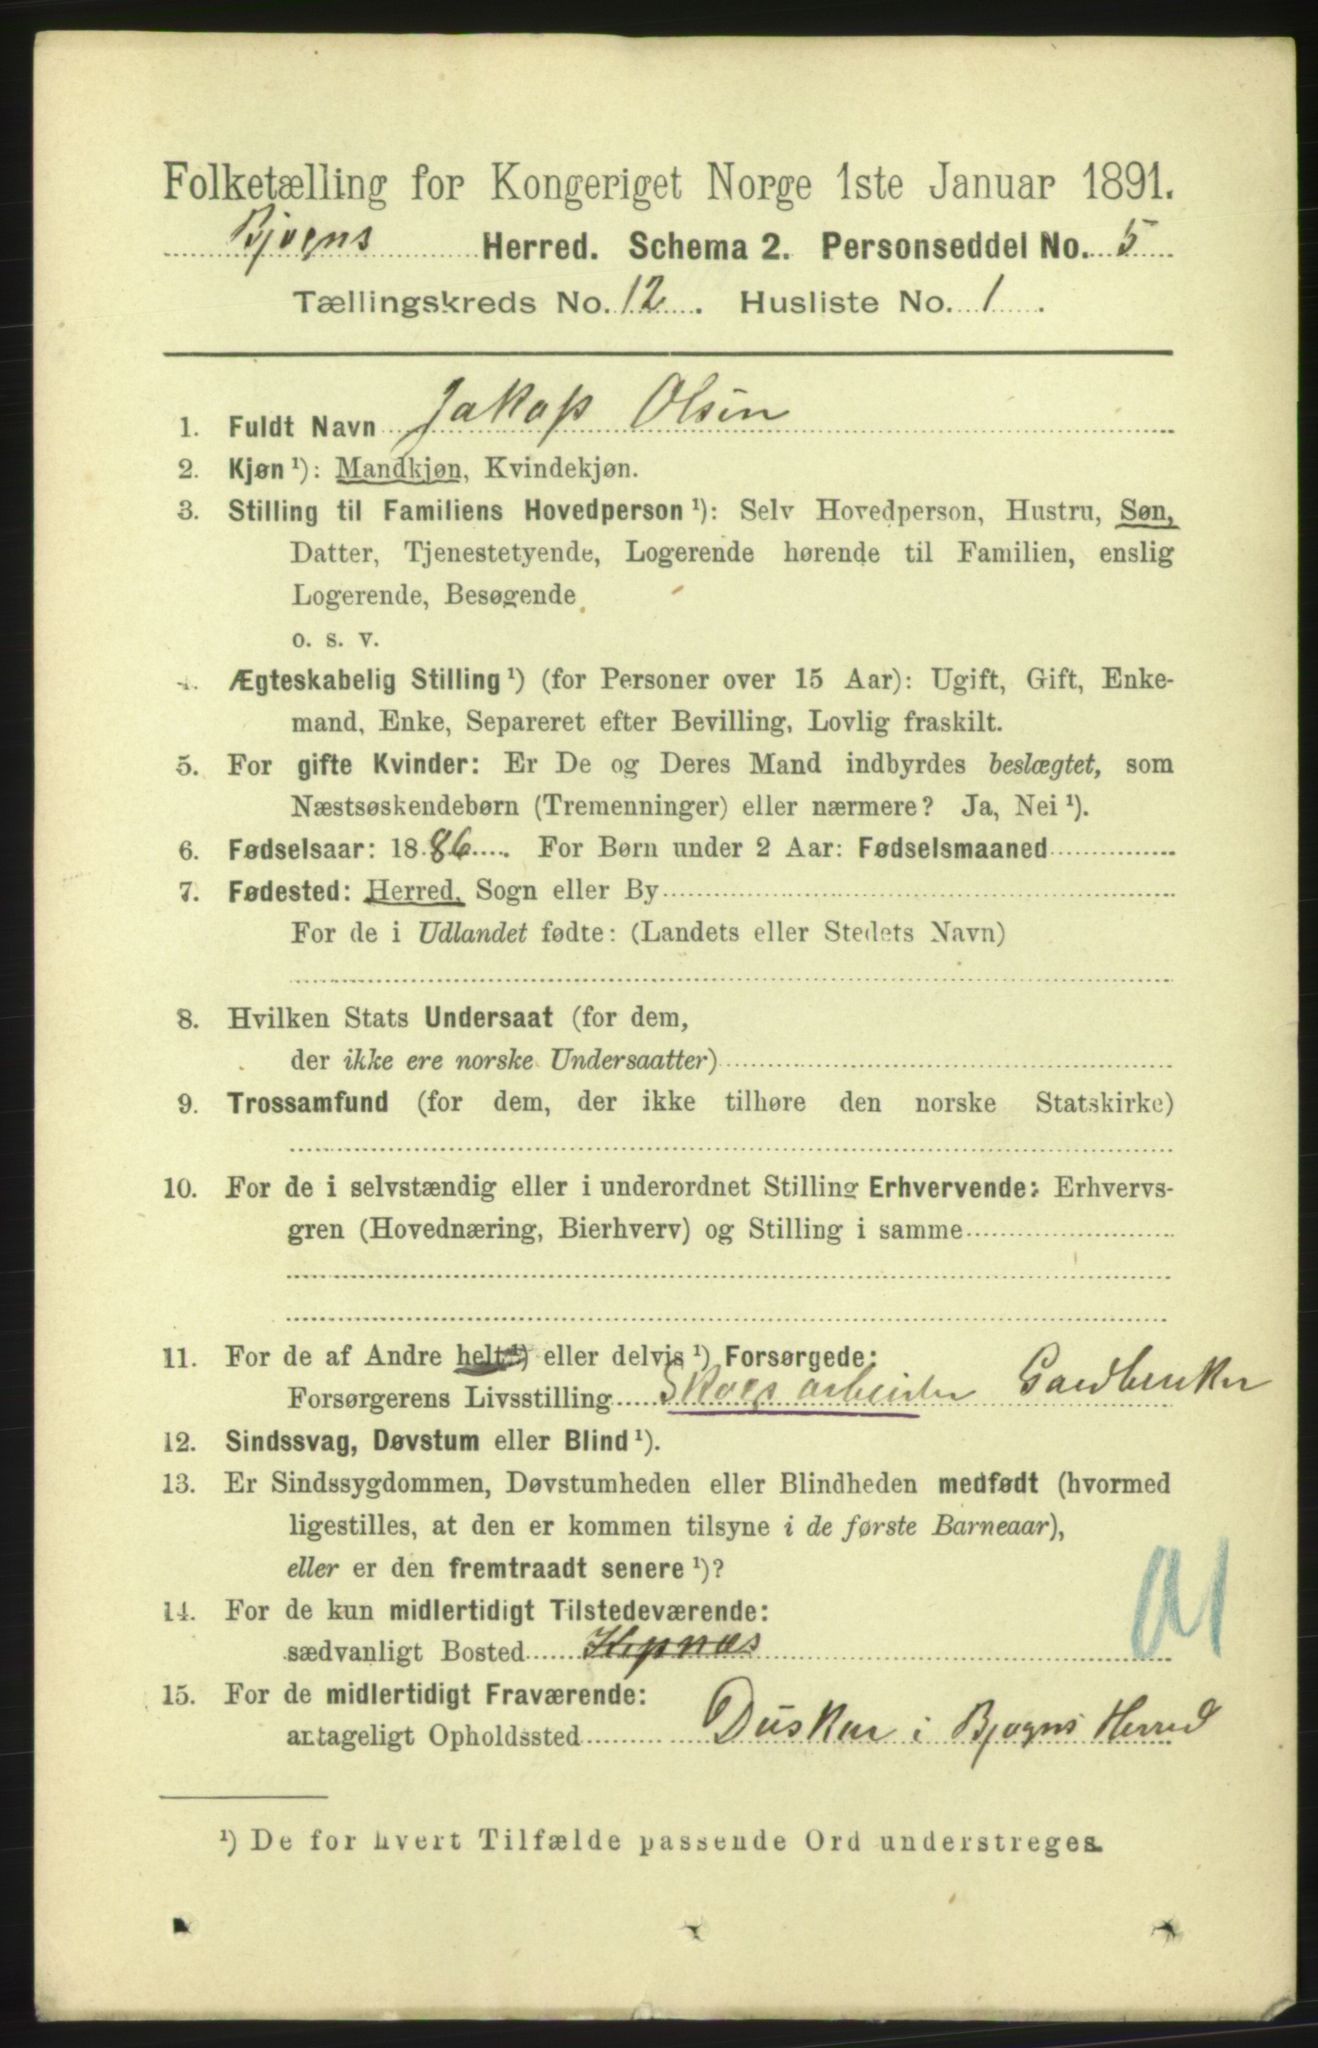 Folketælling for Kongeriget Norge 1ste Januar 1891.
Bjogns Herred. Schema 2. Personseddel No. 5
Tællingskreds No. 12. Husliste No. 1.
1. Fuldt Navn Jakop Olsen
2. Kjøn ¹): Mandkjøn, Kvindekjøn.
3. Stilling til Familiens Hovedperson ¹): Selv Hovedperson, Hustru, Søn,
Datter, Tjenestetyende, Logerende hørende til Familien, enslig
Logerende, Besøgende
o. s. v.
4. Ægteskabelig Stilling ¹) (for Personer over 15 Aar): Ugift, Gift, Enke-
mand, Enke, Separeret efter Bevilling, Lovlig fraskilt.
5. For gifte Kvinder: Er De og Deres Mand indbyrdes beslægtet, som
Næstsøskendebørn (Tremenninger) eller nærmere? Ja, Nei ¹).
6. Fødselsaar: 1886. For Børn under 2 Aar: Fødselsmaaned
7. Fødested: Herred, Sogn eller By
For de i Udlandet fødte: (Landets eller Stedets Navn)
8. Hvilken Stats Undersaat (for dem,
der ikke ere norske Undersaatter)
9. Trossamfund (for dem, der ikke tilhøre den norske Statskirke)
10. For de i selvstændig eller i underordnet Stilling Erhvervende: Erhvervs-
gren (Hovednæring, Bierhverv) og Stilling i samme
11. For de af Andre helt ¹) eller delvis ¹) Forsørgede:
Forsørgerens Livsstilling Skogsarbeider Gardbruker
12. Sindssvag, Døvstum eller Blind ¹).
13. Er Sindssygdommen, Døvstumheden eller Blindheden medfødt (hvormed
ligestilles, at den er kommen tilsyne i de første Barneaar),
eller er den fremtraadt senere ¹)?
14. For de kun midlertidigt Tilstedeværende:
sædvanligt Bosted Kopnæs
15. For de midlertidigt Fraværende:
antageligt Opholdssted Duskar i Bjogns Herred
¹) De for hvert Tilfælde passende Ord understreges.